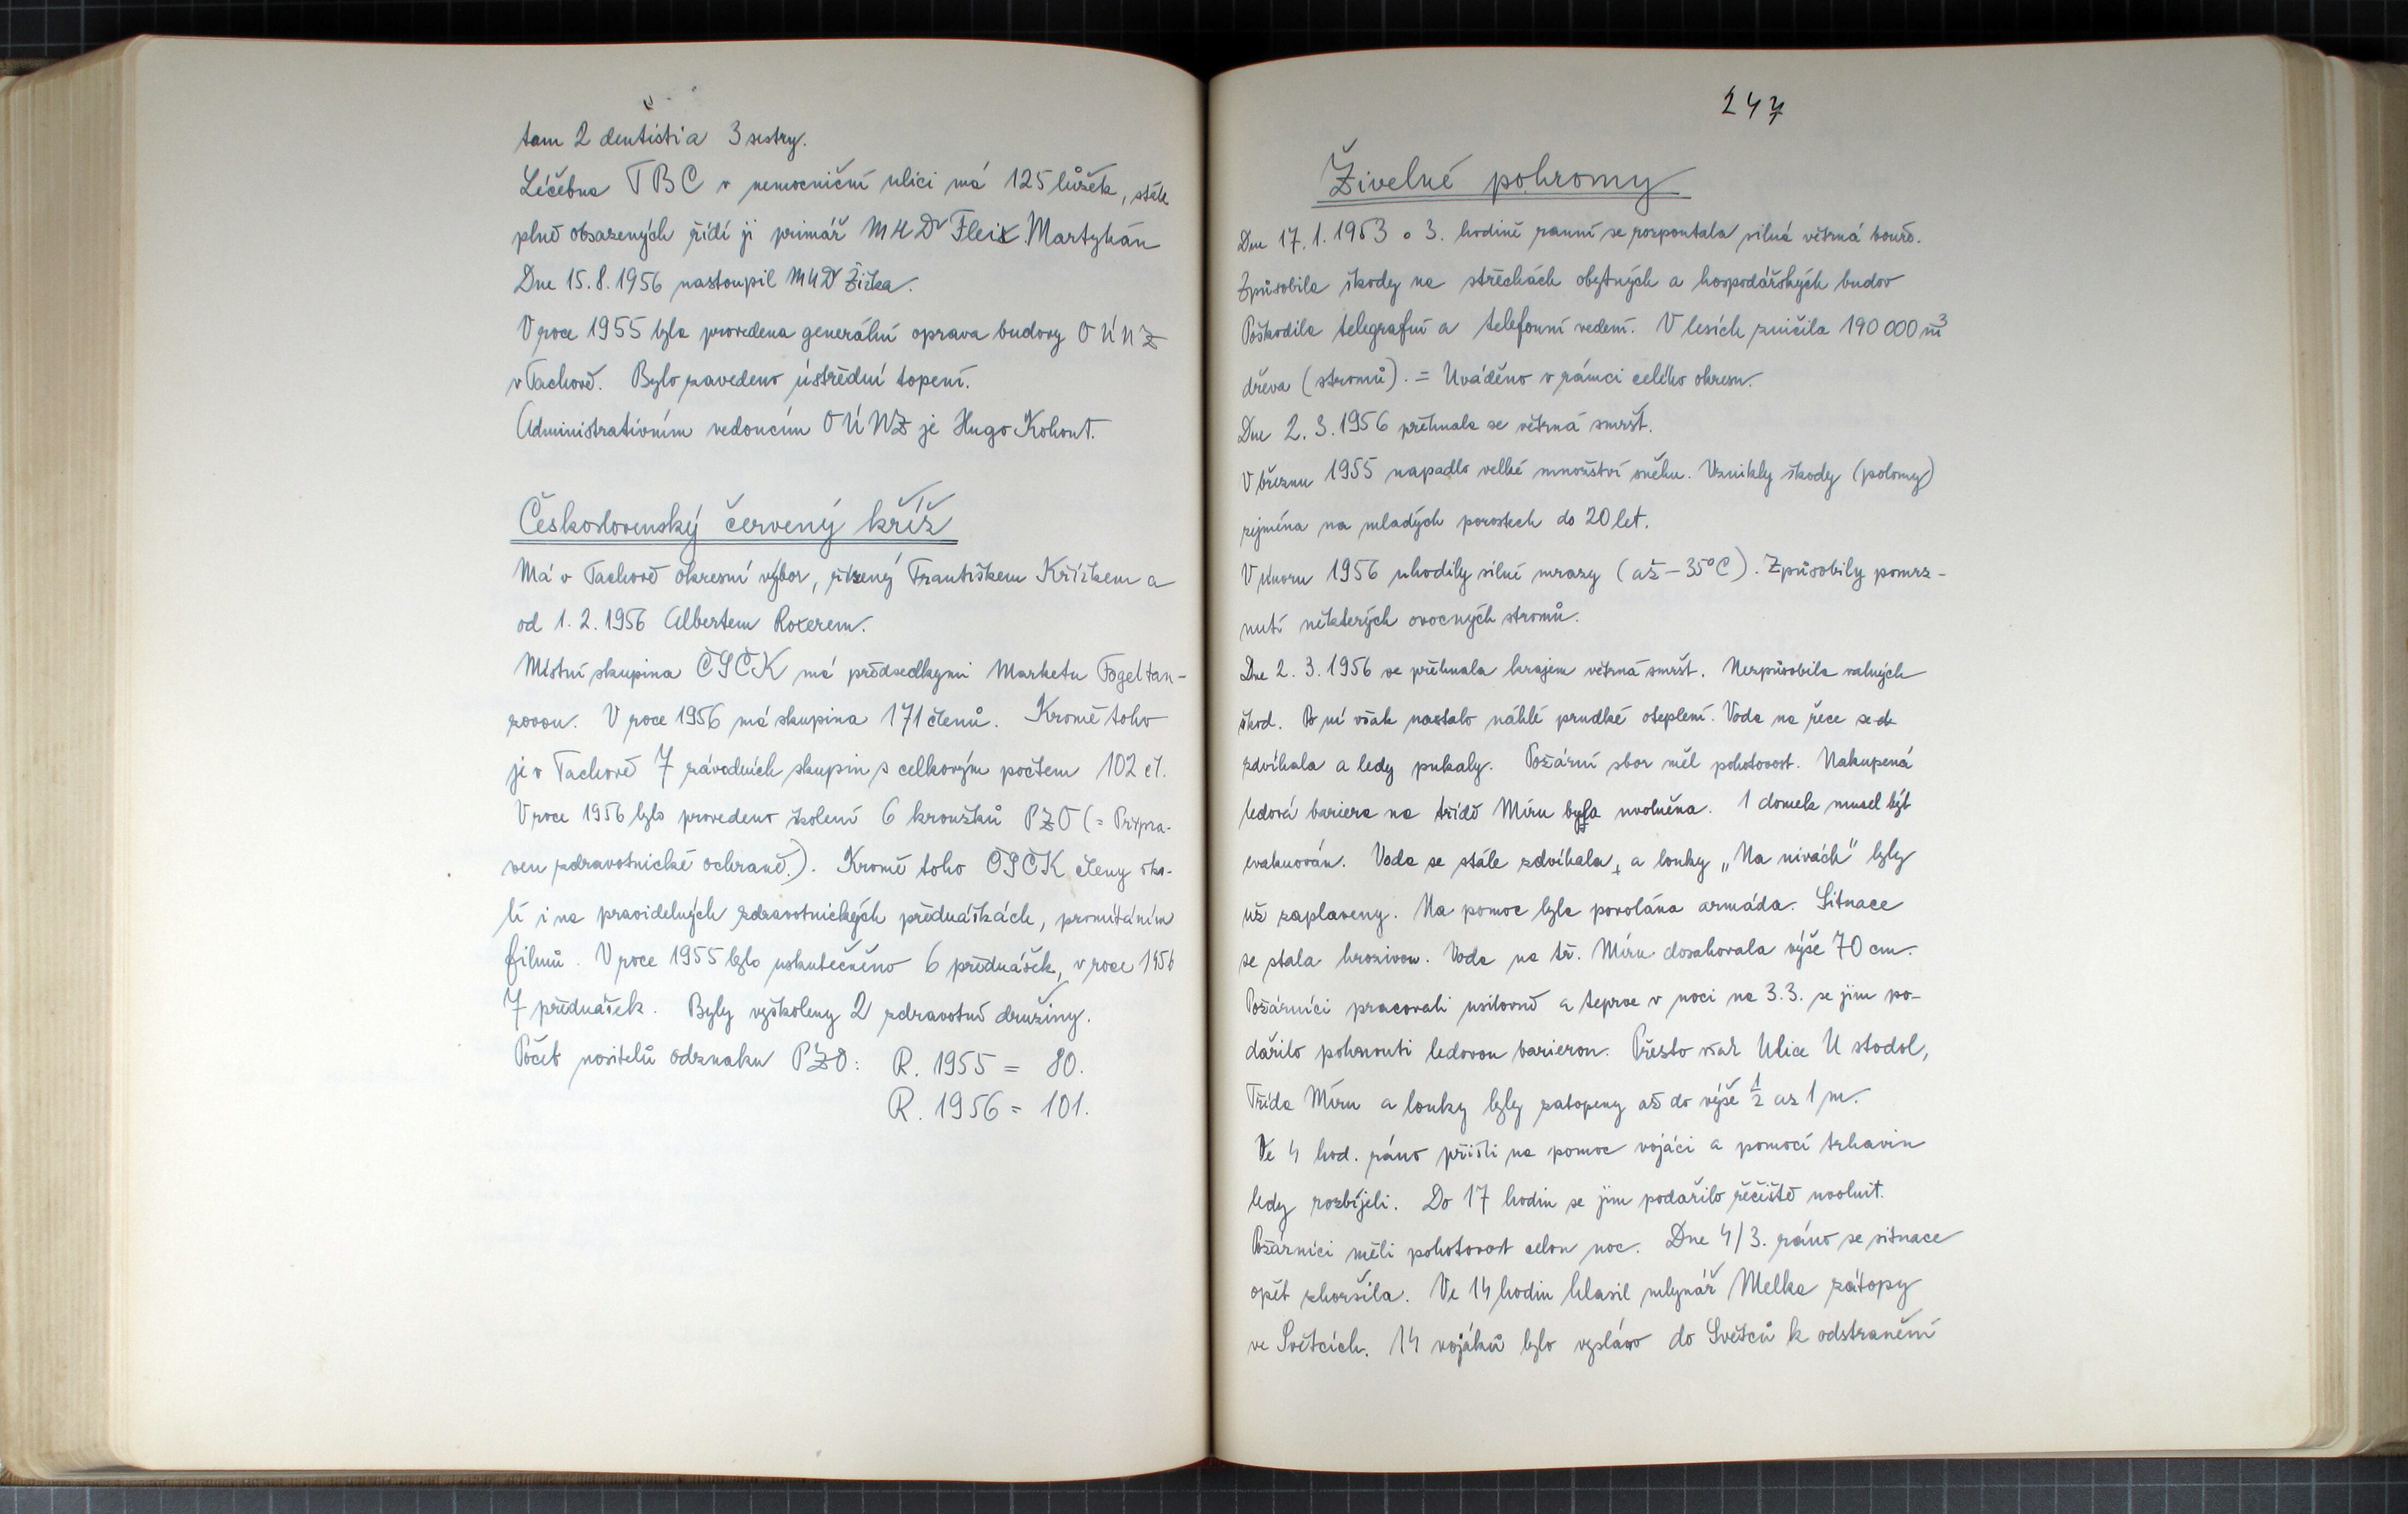 tam 2 dentisti a 3 sestry.
Léčebna TBC v nemocniční ulici má 125 lůžek, stále
plně obsazených řídí ji primář MUDr Fleix Martykán
Dne 15.8.1956 nastoupil MUDr Žižka.
V roce 1955 byla provedena generální oprava budovy OÚNZ
v Tachově. Bylo zavedeno ústřední topení.
Administrativním vedoucím OÚNZ je Hugo Kohout.
Československý červený kříž
Má v Tachově okresní výbor, řízený Františkem Křížkem a
od 1.2.1956 Albertem Roxerem.
Místní skupina ČSČK má předsedkyni Marketu Fogeltan-
zovou. V roce 1956 má skupina 171 členů. Kromě toho
je v Tachově 7 závodních skupin s celkovým počtem 102 čl.
V roce 1956 bylo provedeno školení 6 kroužků PZO (= Připra-
ven zdravotnické ochraně.). Kromě toho ČSČK členy ško-
lí i na pravidelných zdravotnických přednáškách, promítáním
filmů. V roce 1955 bylo uskutečněno 6 přednášek, v roce 1956
7 přednášek. Byly vyškoleny 2 zdravotně družiny.
Počet nositelů odznaku PZO: R. 1955 = 80.
R. 1956 = 101.
247
Živelné pohromy
Dne 17.1.1953 o 3. hodině ranní se rozpoutala silná větrná bouře.
Způsobila škody na střechách obytných a hospodářských budov
Poškodila telegrafní a telefonní vedení. V lesích zničila 190 000 m³
dřeva (stromů). = Uváděno v rámci celého okresu.
Dne 2.3.1956 přehnala se větrná smršť.
V březnu 1955 napadlo velké množství sněhu. Vznikly škody (polomy)
zejména na mladých porostech do 20 let.
V únoru 1956 uhodily silné mrazy (až -35°C). Způsobily pomrz-
nutí některých ovocných stromů.
Dne 2.3.1956 se přehnala krajem větrná smršť. Nezpůsobila valných
škod. Po ní však nastalo náhlé prudké oteplení. Voda na řece se
zdvíhala a ledy pukaly. Požární sbor měl pohotovost. Nakupená
ledová bariera na třídě Míru byla uvolněna. 1 domek musel být
evakuován. Voda se stále zdvíhala, a louky „Na nivách" byly
už zaplaveny. Na pomoc byla povolána armáda. Situace
se stala hrozivou. Voda na tř. Míru dosahovala výše 70 cm.
Požárníci pracovali usilovně a teprve v noci na 3.3. se jim po-
dařilo pohnouti ledovou barierou. Přesto však Ulice U stodol,
Třída Míru a louky byly zatopeny až do výše ½ až 1 m.
Ve 4 hod. ráno přišli na pomoc vojáci a pomocí trhavin
ledy rozbíjeli. Do 17 hodin se jim podařilo řečiště uvolnit.
Požárníci měli pohotovost celou noc. Dne 4/3. ráno se situace
opět zhoršila. Ve 14 hodin hlasil mlynář Melka zátopy
ve Světcích. 14 vojáků bylo vysláno do Světců k odstranění